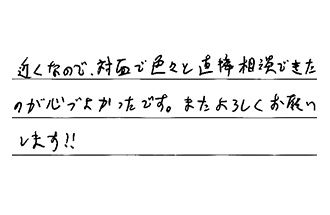 近くなので、対面で色々と直接相談できた
のが心づよかったです。またよろしくお願い
します!!